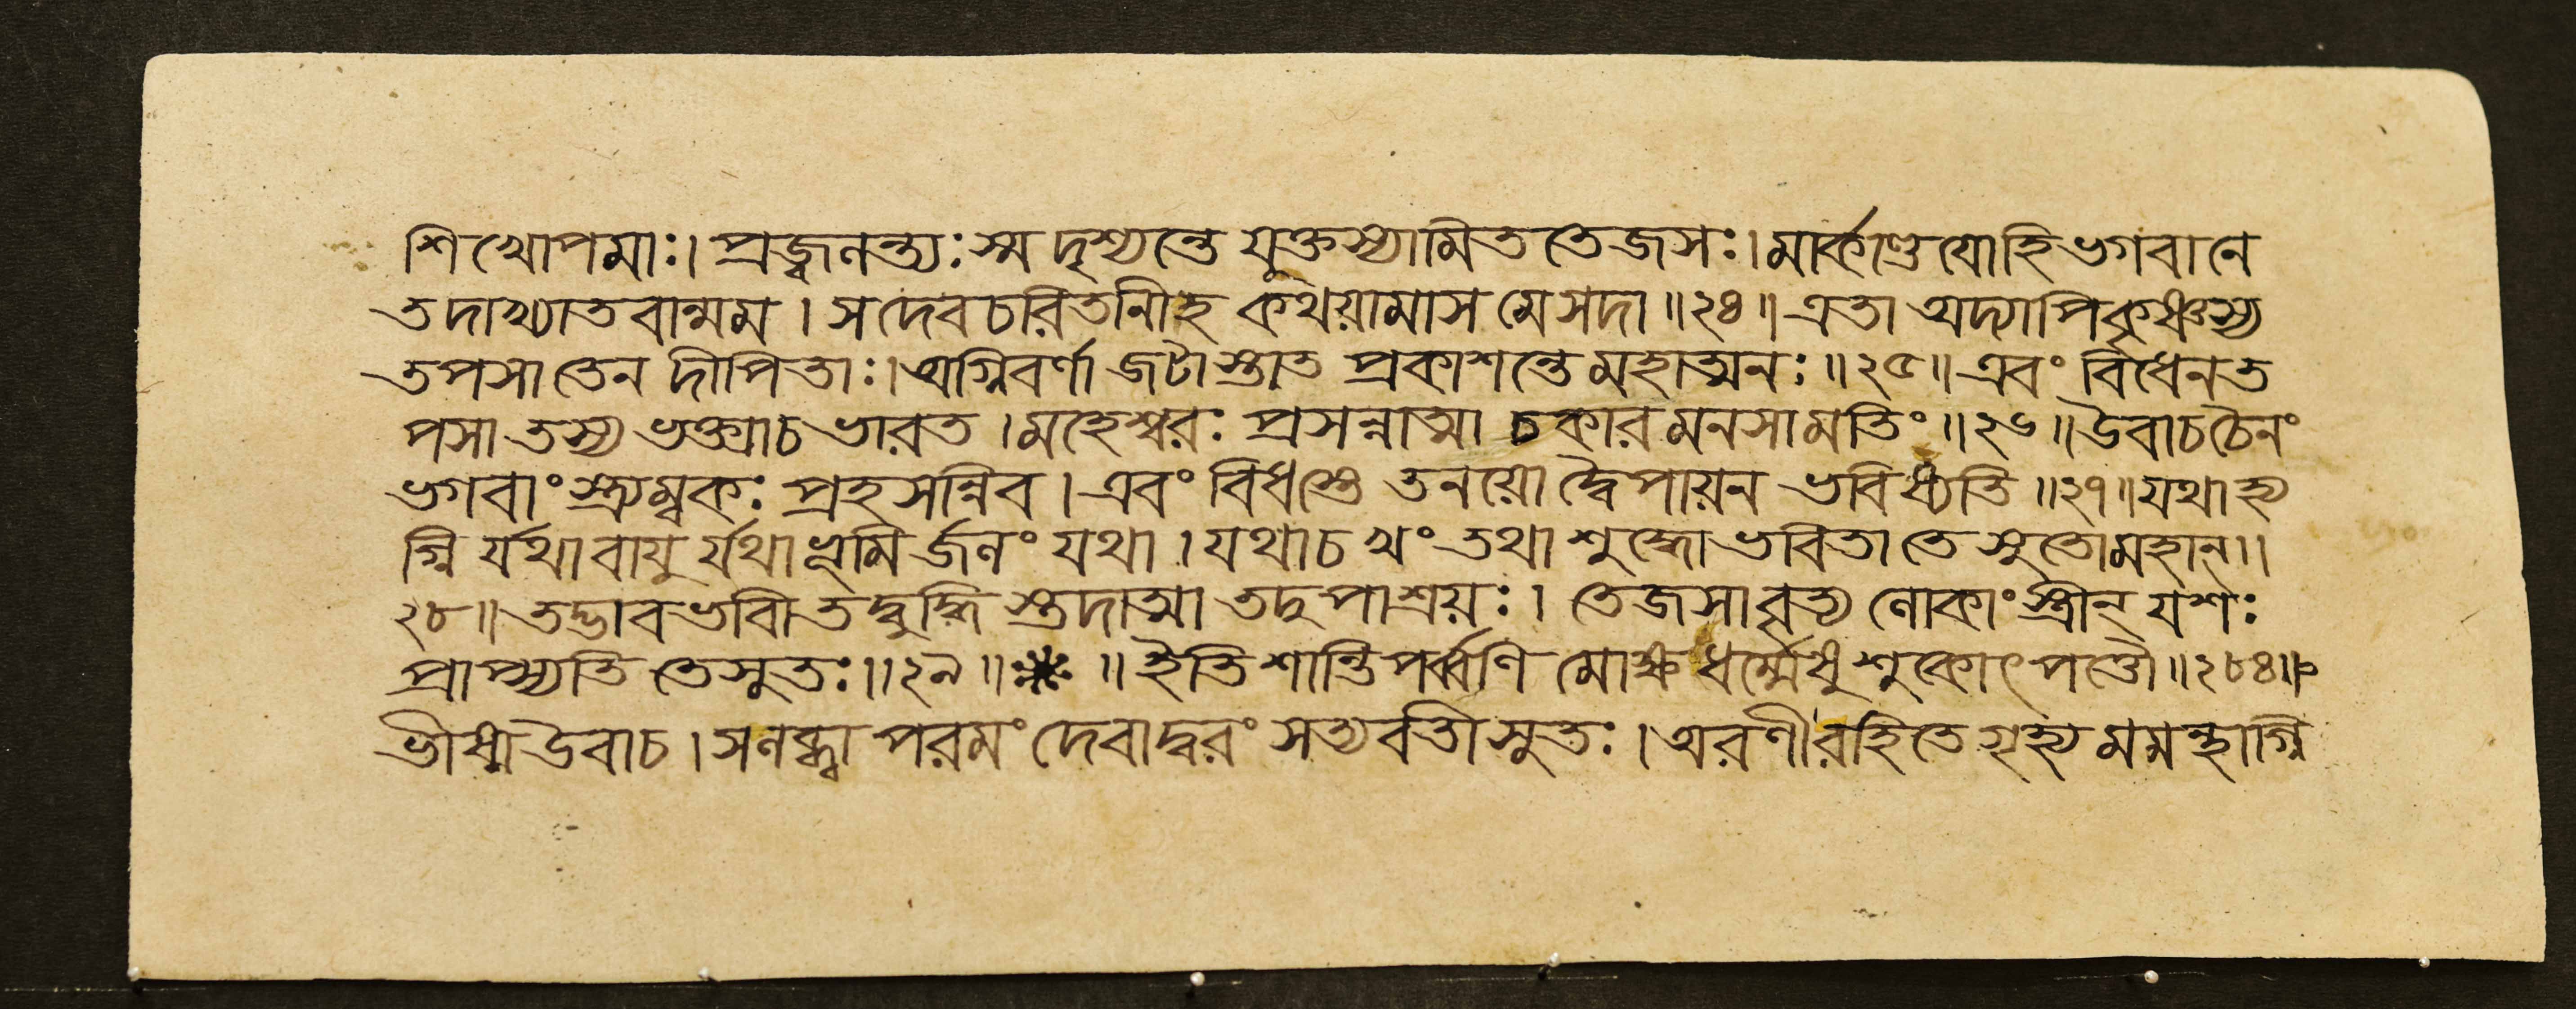 শিখোপমাঃ। প্রজ্বলন্ত্যঃ স্ম দৃশ্যন্তে যুক্তস্যামিততেজসঃ। মার্কণ্ডেয়োহি ভগবানে
তদাখ্যাতবান্মম। স দেবচরিতানীহ কথয়ামাস মে সদা॥২৪॥ এতা অদ্যাপি কৃষ্ণস্য
তপসা তেন দীপিতাঃ। অগ্নিবর্ণা জটাস্তাত প্রকাশন্তে মহাত্মনঃ॥২৫॥ এবং বিধেন ত
পসা তস্য ভক্ত্যা চ ভারত। মহেশ্বরঃ প্রসন্নাত্মা চকার মনসা মতিং॥২৬॥ উবাচ চৈনং
ভগবাংস্ত্র্যম্বকঃ প্রহসন্নিব। এবং বিধস্তে তনয়ো দ্বৈপায়ন ভবিষ্যতি॥২৭॥ যথাহ্য
গ্নি র্যথা বায়ু র্যথা ভূমি র্জলং যথা। যথা চ খং তথা শুদ্ধো ভবিতা তে সুতো মহান্॥
২৮॥ তদ্ভাবভাবী তদ্বুদ্ধি স্তদাত্মা তদুপাশ্রয়ঃ। তেজসাবৃত্য লোকাংস্ত্রীন্ যশঃ
প্রাপ্স্যতি তে সুতঃ॥২৯॥ ॥ ইতি শান্তিপর্ব্বণি মোক্ষধর্ম্মেষু শুকোৎপত্তৌ॥২৮৪॥
ভীষ্ম উবাচ। স লব্ধ্বা পরমং দেবাদ্বরং সত্যবতীসুতঃ। অরণীরহিতে গৃহ্য মমন্থাগ্নি